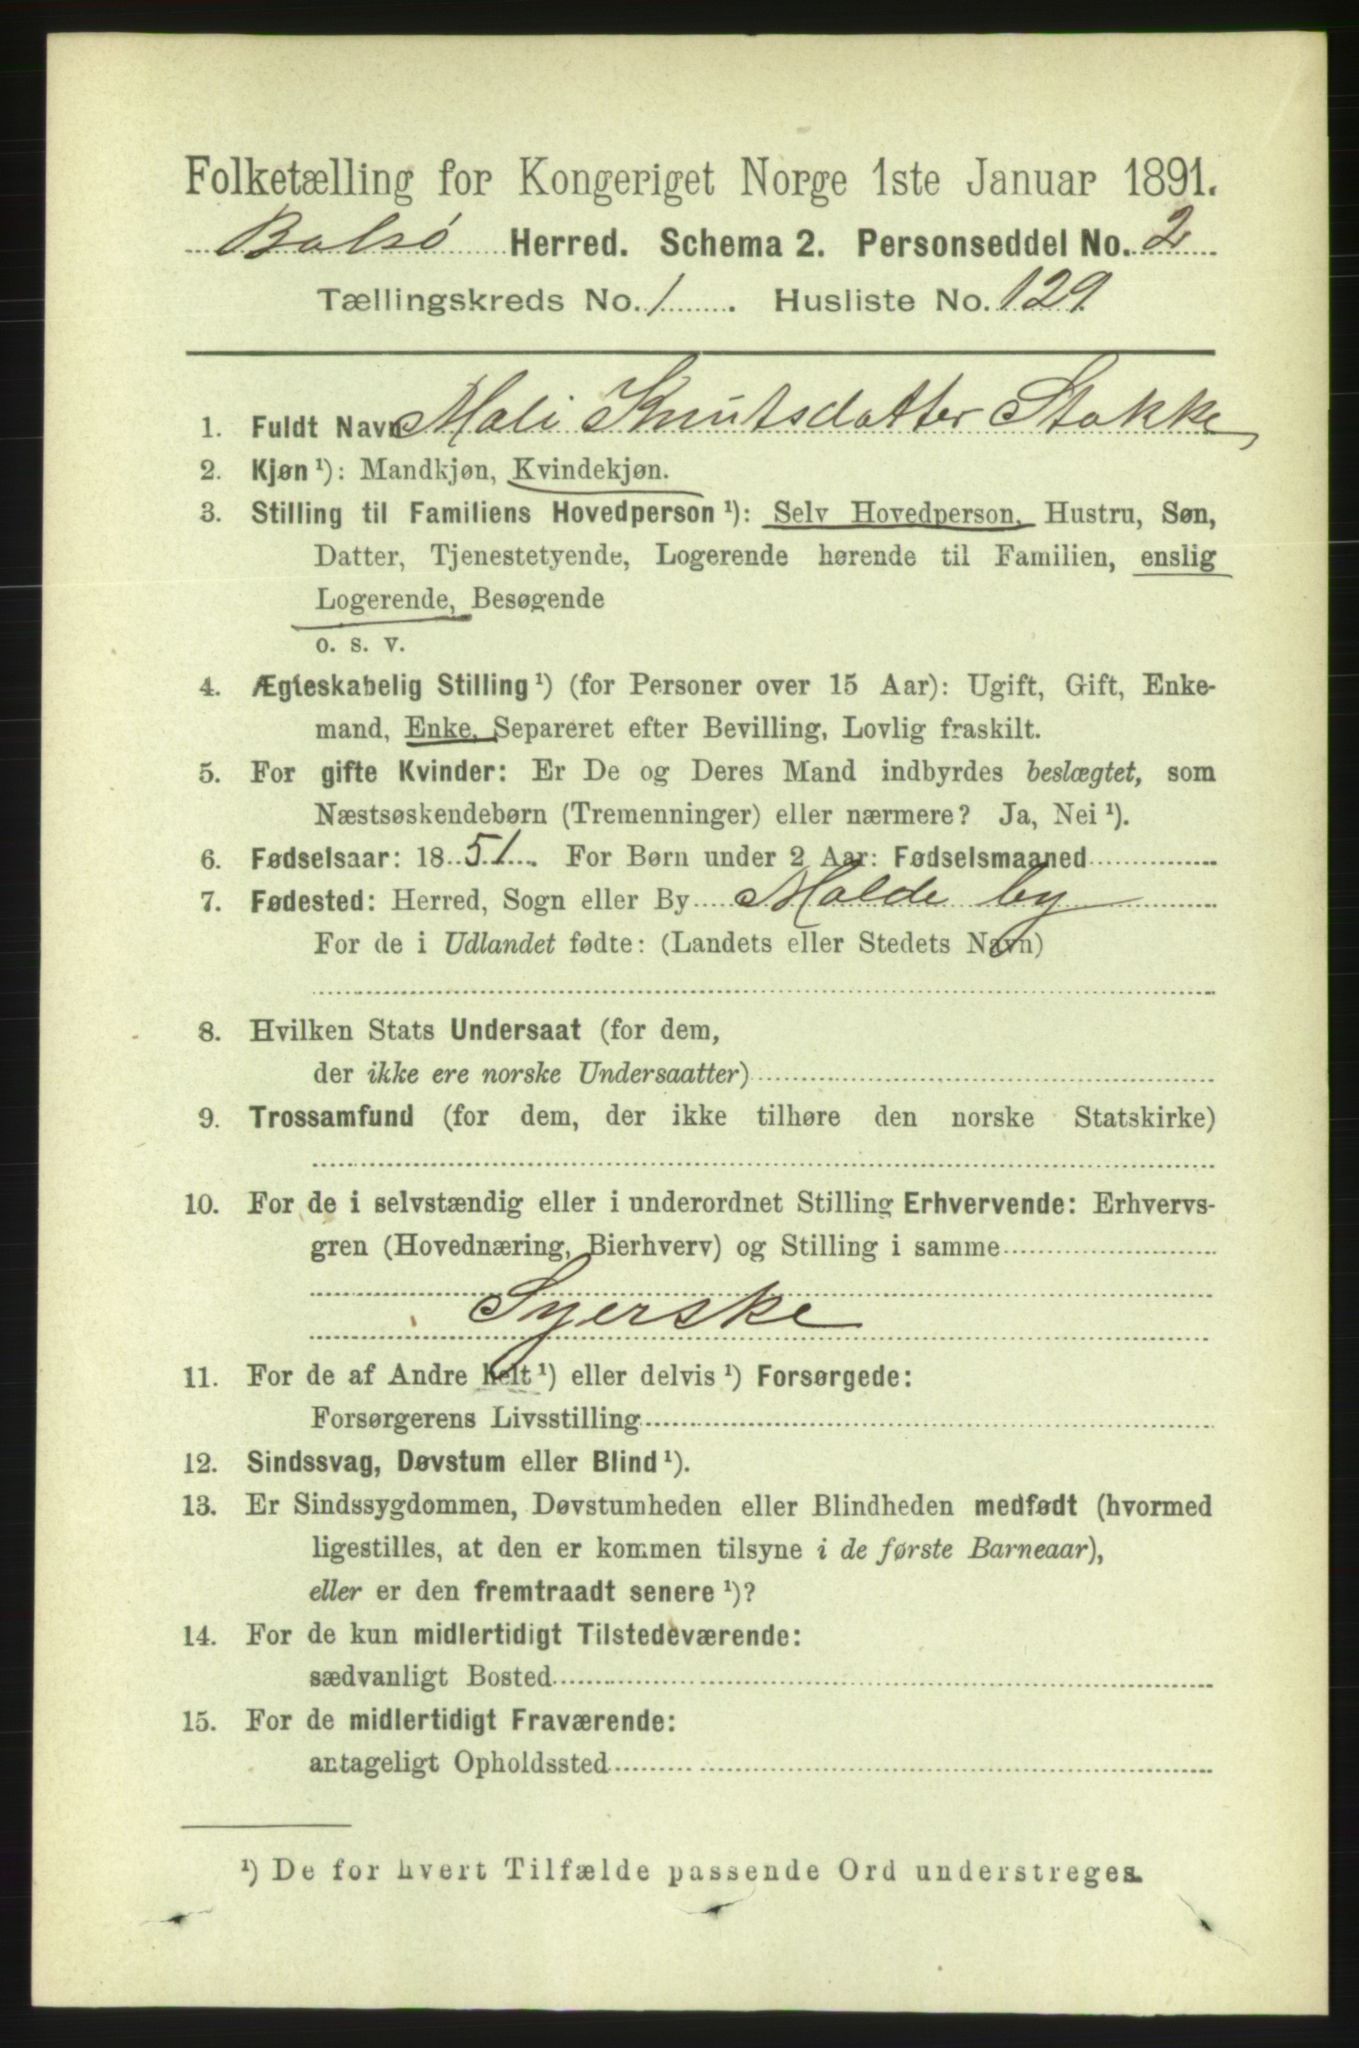 Folketælling for Kongeriget Norge 1ste Januar 1891.
Bolsø Herred. Schema 2. Personseddel No. 2
Tællingskreds No. 1. Husliste No. 129
1. Fuldt Navn Mali Knutsdatter Stokke
2. Kjøn¹): Mandkjøn, Kvindekjøn.
3. Stilling til Familiens Hovedperson¹): Selv Hovedperson, Hustru, Søn,
Datter, Tjenestetyende, Logerende hørende til Familien, enslig
Logerende, Besøgende
o. s. v.
4. Ægteskabelig Stilling¹) (for Personer over 15 Aar): Ugift, Gift, Enke-
mand, Enke, Separeret efter Bevilling, Lovlig fraskilt.
5. For gifte Kvinder: Er De og Deres Mand indbyrdes beslægtet, som
Næstsøskendebørn (Tremenninger) eller nærmere? Ja, Nei¹).
6. Fødselsaar: 1851. For Børn under 2 Aar: Fødselsmaaned
7. Fødested: Herred, Sogn eller By Molde by
For de i Udlandet fødte: (Landets eller Stedets Navn)
8. Hvilken Stats Undersaat (for dem,
der ikke ere norske Undersaatter)
9. Trossamfund (for dem, der ikke tilhøre den norske Statskirke)
10. For de i selvstændig eller i underordnet Stilling Erhvervende: Erhvervs-
gren (Hovednæring, Bierhverv) og Stilling i samme
Syerske
11. For de af Andre helt¹) eller delvis¹) Forsørgede:
Forsørgerens Livsstilling
12. Sindssvag, Døvstum eller Blind¹).
13. Er Sindssygdommen, Døvstumheden eller Blindheden medfødt (hvormed
ligestilles, at den er kommen tilsyne i de første Barneaar),
eller er den fremtraadt senere¹)?
14. For de kun midlertidigt Tilstedeværende:
sædvanligt Bosted
15. For de midlertidigt Fraværende:
antageligt Opholdssted
¹) De for hvert Tilfælde passende Ord understreges.